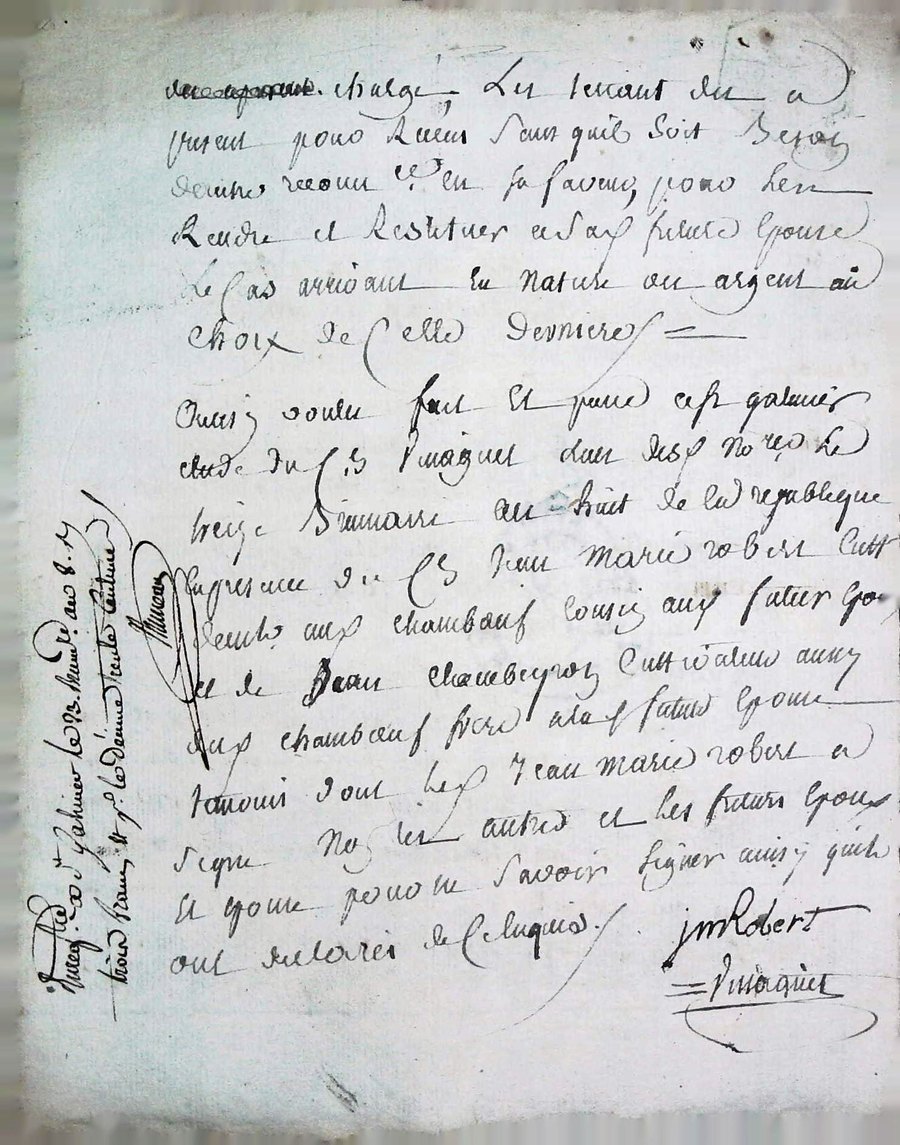 chargé, Les tenant des a
present pour Recus Sans quil Soit Besoin
dautre reconn.ce en sa faveur, pour les
Rendre et Restituer a Sa future Epouse
Le Cas arrivant En nature ou argent au
choix de Celle derniere
Ainsy voulu fait Et passé a St galmier
etude du C.n Vinagnet L'un des No.res Le
treize Brumaire an huit de la republique
En presence du C.n Jean Marie robert Cult
aud. chambœuf Cousin aud. futur Epo
et de Jean Chambeyron Cultivateur aussy
aud. chambœuf frere a la future Epouse
temoins dont led. Jean Marie robert a
Signé Non les autres et les futurs Epoux
Et Epouse pour ne Savoir Signer ainsy quils
ont declaré de Ce Enquis
jmRobert
Vinagnet
Enreg.tré a S.t Galmier le 23 Brum.re an 8. R
trois francs et p.r le dixime trente Centimes